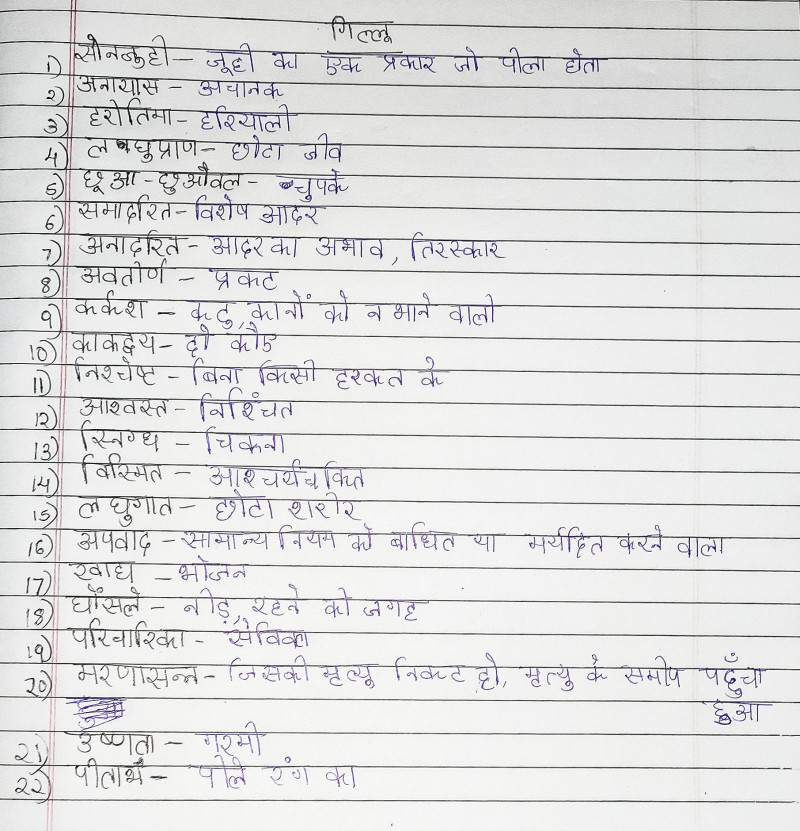 गिल्लू
1) सोनजुही - जूही का एक प्रकार जो पीला होता
2) अनायास - अचानक
3) हरीतिमा - हरियाली
4) लघुप्राण - छोटा जीव
5) छूआ-छुऔवल - चुपके
6) समादरित - विशेष आदर
7) अनादरित - आदर का अभाव, तिरस्कार
8) अवतीर्ण - प्रकट
9) कर्कश - कटु, कानों को न भाने वाली
10) काकद्वय - दो कौए
11) निश्चेष्ट - बिना किसी हरकत के
12) आश्वस्त - निश्चिंत
13) स्निग्ध - चिकना
14) विस्मित - आश्चर्यचकित
15) लघुगात - छोटा शरीर
16) अपवाद - सामान्य नियम को बाधित या मर्यादित करने वाला
17) खाद्य - भोजन
18) घोंसले - नीड़, रहने की जगह
19) परिचारिका - सेविका
20) मरणासन्न - जिसकी मृत्यू निकट हो, मृत्यु के समीप पहुँचा
हुआ
21) उष्णता - गरमी
22) पीताभ - पीले रंग का